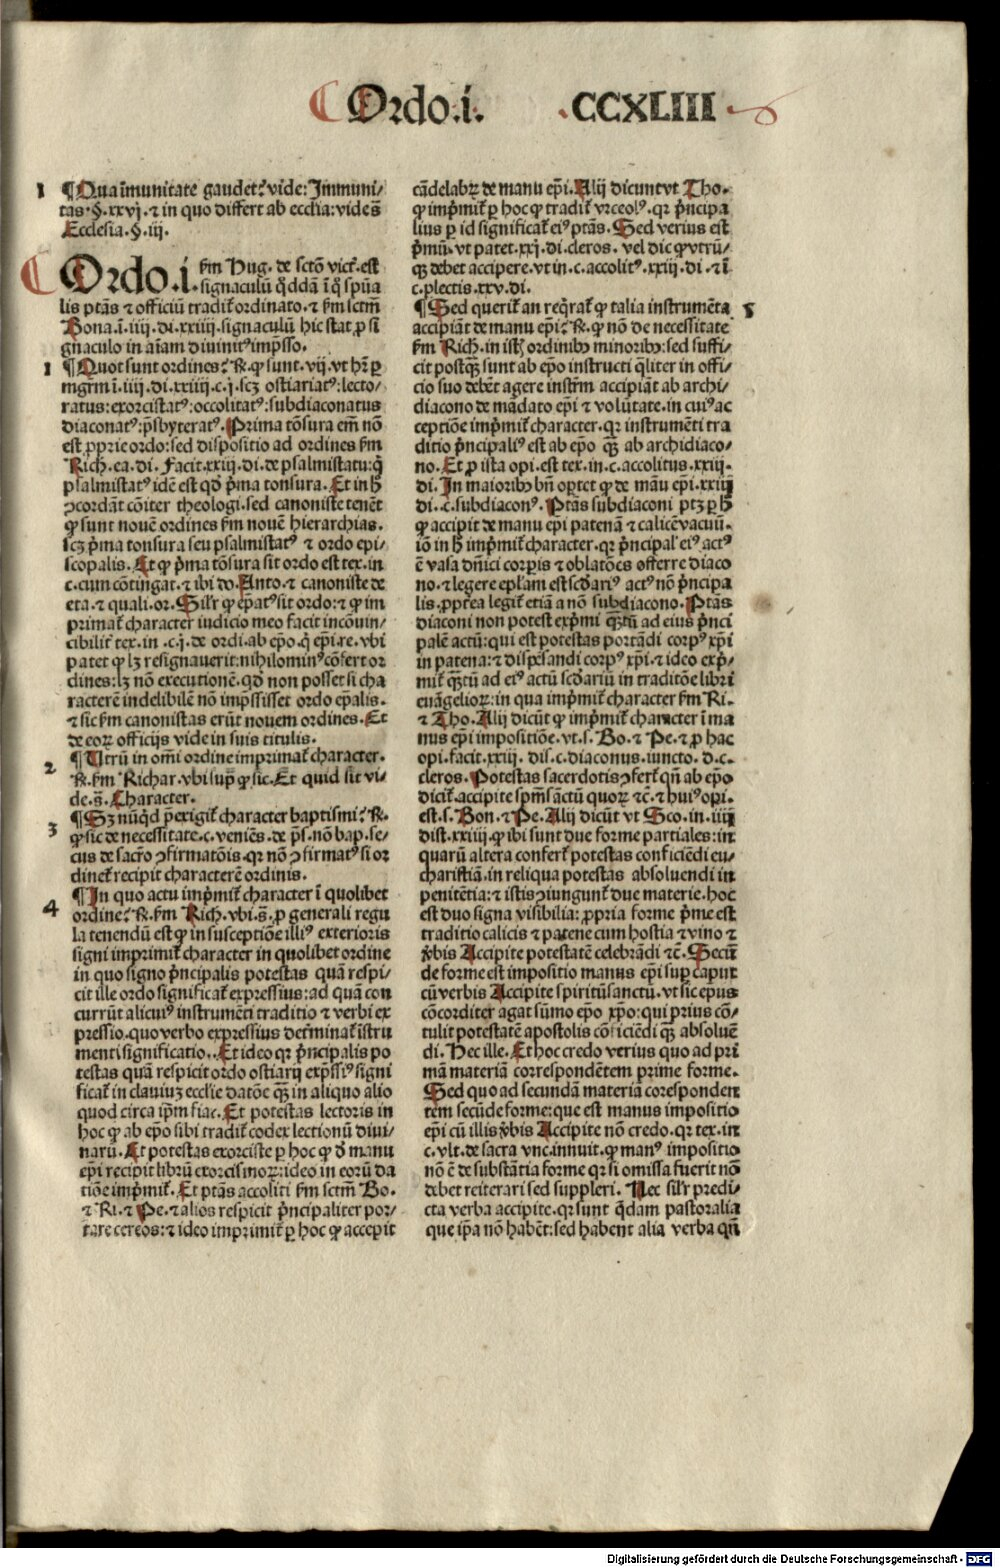 Ordo.i. .CCXLIII
1 ¶Qua īmunitate gaudet? vide: Immuni/
tas.§.xxvj.⁊ in quo differt ab ecclia: vide s̄
Ecclesia.§.iij.
Ordo.i. ẜm Hug. de sctō vict̄. est
signaculū q̄ddā ī q̄ spūa
lis ptās ⁊ officiū tradit̄ ordinato.⁊ ẜm sctm̄
Bona.ī.iiij.di.xxiiij.signaculū hic stat ꝓ si
gnaculo in aīam diuinitꝰ impsso.
1 ¶Quot sunt ordines? ℞. ꝙ sunt.vij.vt hr̄ ꝑ
mgrm̄ ī.iiij.di.xxiiij.c.j.scꝫ ostiariatꝰ: lecto/
ratus: exorcistatꝰ: occolitatꝰ: subdiaconatus
diaconatꝰ: p̄sbyteratꝰ. Prima tōsura em̄ nō
est ꝓprie ordo: sed dispositio ad ordines ẜm
Rich.ea.di. Facit.xxiij.di.de psalmistatu: q̄
psalmistatꝰ idē est qd̄ p̄ma tonsura. Et in h̄
ꝯcordāt cōiter theologi. sed canoniste tenēt
ꝙ sunt nouē ordines ẜm nouē hierarchias.
scꝫ p̄ma tonsura seu psalmistatꝰ ⁊ ordo epi/
scopalis. Et ꝙ p̄ma tōsura sit ordo est tex. in
c.cum cōtingat.⁊ ibi do. Anto.⁊ canoniste de
eta.⁊ quali.or. Silr̄ ꝙ ep̄atꝰ sit ordo: ⁊ ꝙ im
primat̄ character iudicio meo facit incōuin/
cibilit̄ tex. in.c.j.de ordi.ab epo.q̄ ep̄i.re.vbi
patet ꝙ lꝫ resignauerit: nihilominꝰ cōfert or
dines: lꝫ nō executionē. qd̄ non posset si cha
racterē indelibilē nō impssisset ordo ep̄alis.
⁊ sic ẜm canonistas erūt nouem ordines. Et
de eoꝝ officijs vide in suis titulis.
2 ¶Vtrū in om̄i ordine imprimat̄ character.
℞. ẜm Richar. vbi sup̄ ꝙ sic. Et quid sit vi/
de.s̄. Character.
3 ¶Sꝫ nūqd̄ p̄exigit̄ character baptismi? ℞.
ꝙ sic de necessitate.c.veniēs.de p̄s.nō bap.se/
cus de sacro ꝯfirmatōis. qr nō ꝯfirmatꝰ si or
dinet̄ recipit characterē ordinis.
4 ¶In quo actu imp̄mit̄ character ī quolibet
ordine? ℞. ẜm Rich. vbi.s̄. ꝓ generali regu
la tenendū est ꝙ in susceptiōe illiꝰ exterioris
signi imprimit̄ character in quolibet ordine
in quo signo p̄ncipalis potestas quā respi/
cit ille ordo significat̄ expressius: ad quā con
currūt alicuiꝰ instrumēti traditio ⁊ verbi ex
pressio. quo verbo expressius det̄minat̄ īstru
menti significatio.. Et ideo qr p̄ncipalis po
testas quā respicit ordo ostiarij exp̄ssiꝰ signi
ficat̄ in clauiuꝫ ecclie datōe qꝫ̄ in aliquo alio
quod circa ip̄m fiat. Et potestas lectoris in
hoc ꝙ ab epo sibi tradit̄ codex lectionū diui/
narū. Et potestas exorciste ꝑ hoc ꝙ d̄ manu
ep̄i recipit librū exorcismoꝝ: ideo in eorū da
tiōe imp̄mit̄. Et ptās accoliti ẜm sctm̄ Bo.
⁊ Ri.⁊ Pe.⁊ alios respicit p̄ncipaliter por/
tare cereos: ⁊ ideo imprimit̄ ꝑ hoc ꝙ accepit
cādelabꝝ de manu ep̄i. Alij dicunt vt Tho.
ꝙ imp̄mit̄ ꝑ hoc ꝙ tradit̄ vrceolꝰ. qr p̄ncipa
lius ꝑ id significat̄ eiꝰ ptās. Sed verius est
p̄mū. vt patet.xxj.di.cleros. vel dic ꝙ vtrū/
qꝫ debet accipere. vt in.c.accolitꝰ.xxiij.di.⁊ ī
c.ꝑlectis.xxv.di.
5 ¶Sed querit̄ an reqrat̄ ꝙ talia instrumēta
accipiāt de manu ep̄i? ℞. ꝙ nō de necessitate
ẜm Rich. in ist̄ ordinibꝰ minoribꝰ: sed suffi/
cit postqꝫ̄ sunt ab ep̄o instructi qliter in offi/
cio suo debēt agere instrm̄ accipiāt ab archi/
diacono de mādato ep̄i ⁊ volūtate. in cuiꝰ ac
ceptiōe imp̄mit̄ character. qr instrumēti tra
ditio p̄ncipaliꝰ est ab ep̄o qꝫ̄ ab archidiaco/
no. Et ꝓ ista opi. est tex. in.c.accolitus.xxiij.
di. In maioribꝰ bn̄ oꝑtet ꝙ de māu ep̄i.xxiij
di.c.subdiaconꝰ. Ptās subdiaconi ptꝫ ꝑ h̄
ꝙ accipit de manu ep̄i patenā ⁊ calicē vacuū.
iō in h̄ imp̄mit̄ character. qr p̄ncipal̄ eiꝰ actꝰ
ē vasa dn̄ici corꝑis ⁊ oblatōes offerre diaco
no.⁊ legere ep̄lam est scd̄ariꝰ actꝰ nō p̄ncipa
lis. ꝓpt̄ea legit̄ etiā a nō subdiacono. Ptās
diaconi non potest exp̄mi qꝫ̄tū ad eius p̄nci
palē actū: qui est potestas portādi corpꝰ xp̄i
in patena: ⁊ dispēsandi corpꝰ xp̄i.⁊ ideo exp̄/
mit̄ qꝫ̄tū ad eiꝰ actū scd̄ariū in traditōe libri
euāgelioꝝ: in qua imp̄mit̄ character ẜm Ri.
⁊ Tho. Alij dicūt ꝙ imp̄mit̄ character ī ma
nus ep̄i impositiōe. vt.s. Bo.⁊ Pe.⁊ ꝓ hac
opi. facit.xxiij.dis.c.diaconus. iuncto.d.c.
cleros. Potestas sacerdotis ꝯfert̄ qn̄ ab ep̄o
dicit̄. accipite spm̄ sāctū quoꝝ ⁊c̄.⁊ huiꝰ opi.
est.s. Bon.⁊ Pe. Alij dicūt vt Sco.in.iiij
dist.xxiiij. ꝙ ibi sunt due forme partiales: in
quarū altera confert̄ potestas conficiēdi eu/
charistiā. in reliqua potestas absoluendi in
penitētia: ⁊ istis ꝯiungunt̄ due materie. hoc
est duo signa visibilia: ꝓpria forme p̄me est
traditio calicis ⁊ patene cum hostia ⁊ vino ⁊
v̄bis Accipite potestatē celebrādi ⁊c̄. Secūn
de forme est impositio manus ep̄i suꝑ caput
cū verbis Accipite spiritū sanctū. vt sic ep̄us
cōcorditer agat sūmo ep̄o xp̄o: qui prius cō/
tulit potestatē apostolis cōficiēdi qꝫ̄ absoluē
di. Hec ille. Et hoc credo verius quo ad pri
mā materiā correspondētem prime forme.
Sed quo ad secundā materiā corespondent
tem secūde forme: que est manus impositio
ep̄i cū illis v̄bis Accipite nō credo. qr tex. in
c.vlt.de sacra vnc. innuit. ꝙ manꝰ impositio
nō ē de substātia forme qr si omissa fuerit nō
debet reiterari sed suppleri. Nec silr̄ predi/
cta verba accipite. qr sunt q̄dam pastoralia
que ip̄a nō habēt: sed habent alia verba qn̄
Digitalisierung gefördert durch die Deutsche Forschungsgemeinschaft - DFG